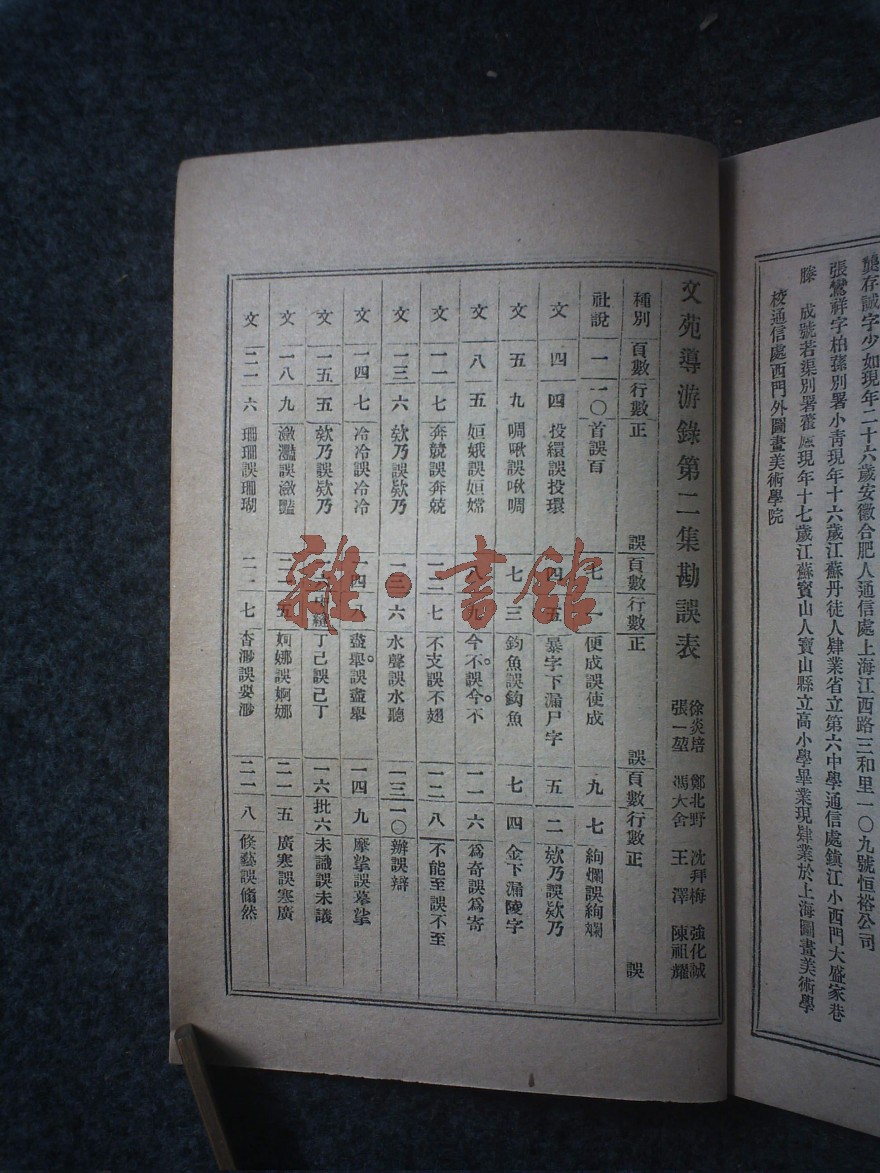 龔存誠字少如現年二十六歲安徽合肥人通信處上海江西路三和里一〇九號恒裕公司
張鸞祥字柏蓀別署小靑現年十六歲江蘇丹徒人肄業省立第六中學通信處鎭江小西門大盛家巷
滕 成號若渠別署薇廬現年十七歲江蘇寶山人寶山縣立高小學畢業現肄業於上海圖畫美術學
校通信處西門外圖畫美術學院
文苑導游錄第二集勘誤表
徐炎培 鄭北野 沈拜梅 強化誠
張一堃 馮大舍 王 澤 陳祖耀
種別 頁數 行數 正 誤 頁數 行數 正 誤 頁數 行數 正 誤
社說 一 一〇 首誤百 七 一 便成誤使成 九 七 絢爛誤絢斕
文 四 四 投繯誤投環 四 五 暴字下漏尸字 五 二 欸乃誤欵乃
文 五 九 啁啾誤啾啁 七 三 釣魚誤鈎魚 七 四 金下漏陵字
文 八 五 姮娥誤姮嫦 八 九 今不誤今不 一一 六 爲奇誤爲寄
文 一一 七 奔競誤奔兢 一二 七 不支誤不翅 一二 八 不能至誤不至
文 一三 六 欸乃誤欵乃 一三 六 水聲誤水聽 一三 一〇 辦誤辯
文 一四 七 泠泠誤冷冷 一四 八 盡舉誤盡舉 一四 九 摩挲誤摹挲
文 一五 五 欸乃誤欵乃 丁己誤己丁 一六 批六 未識誤未議
文 一八 九 瀲灩誤瀲豔 五 婀娜誤婀娜 二一 五 廣寒誤寒廣
文 二一 六 珊珊誤珊瑚 二一 七 杳渺誤要渺 二一 八 倏藝誤翛然
雜·書館